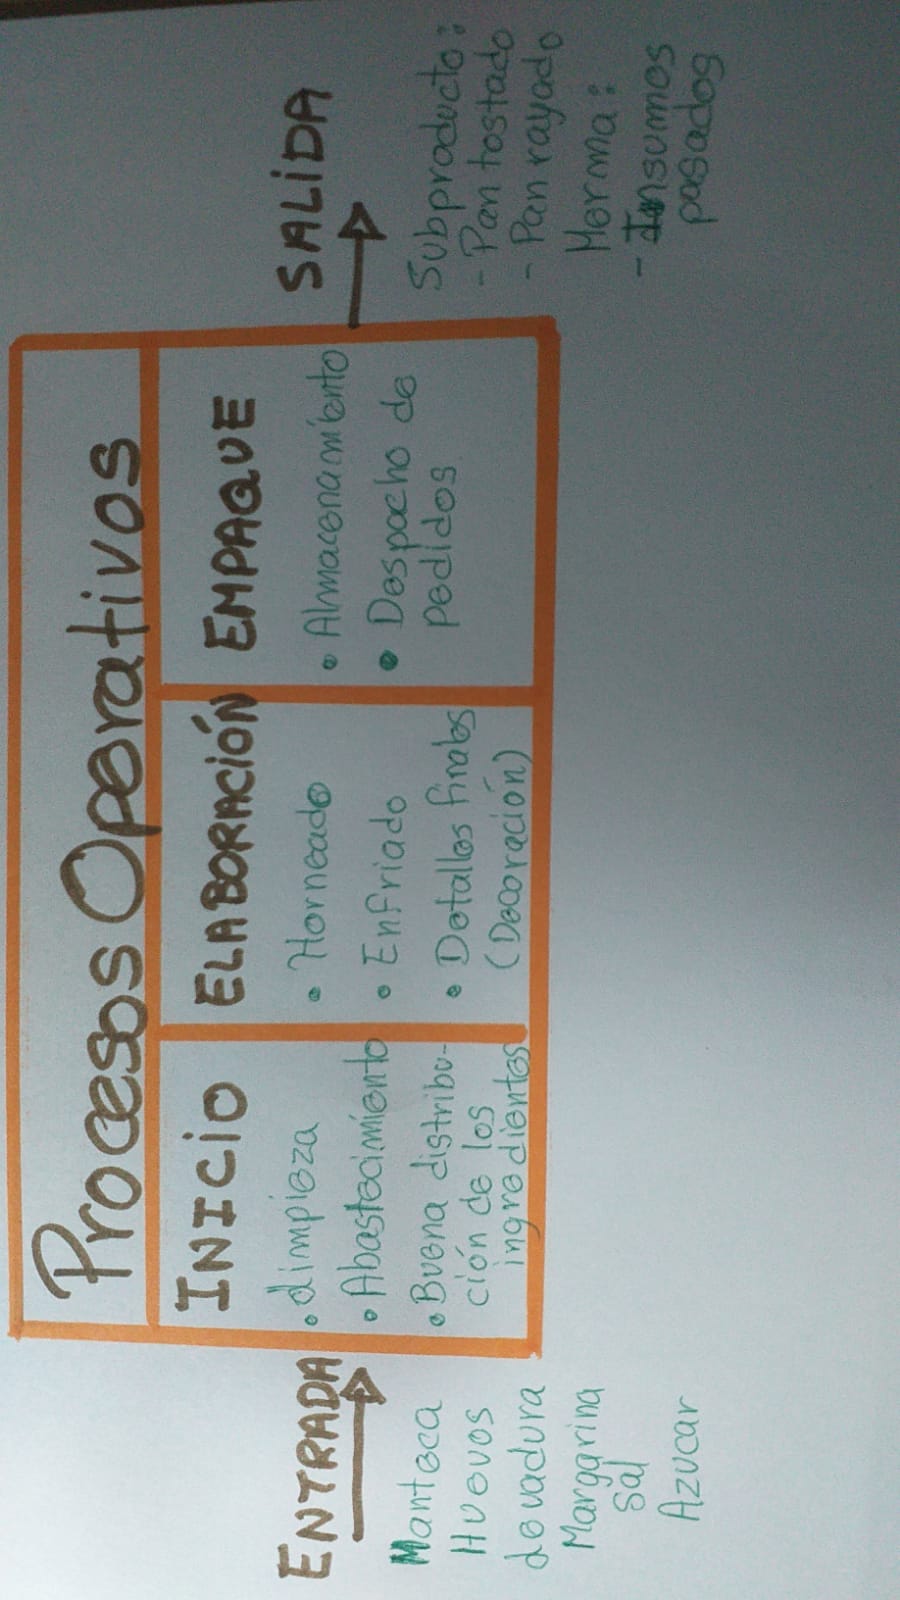 Procesos Operativos
ENTRADA
Manteca
Huevos
Levadura
Margarina
Sal
Azucar
INICIO
• Limpieza
• Abastecimiento
• Buena distribu-
ción de los
ingredientes
ELABORACIÓN
• Horneado
• Enfriado
• Detalles finales
(Decoración)
EMPAQUE
• Almacenamiento
• Despacho de
pedidos
SALIDA
Subproducto:
- Pan tostado
- Pan rayado
Merma:
- Insumos
pasados